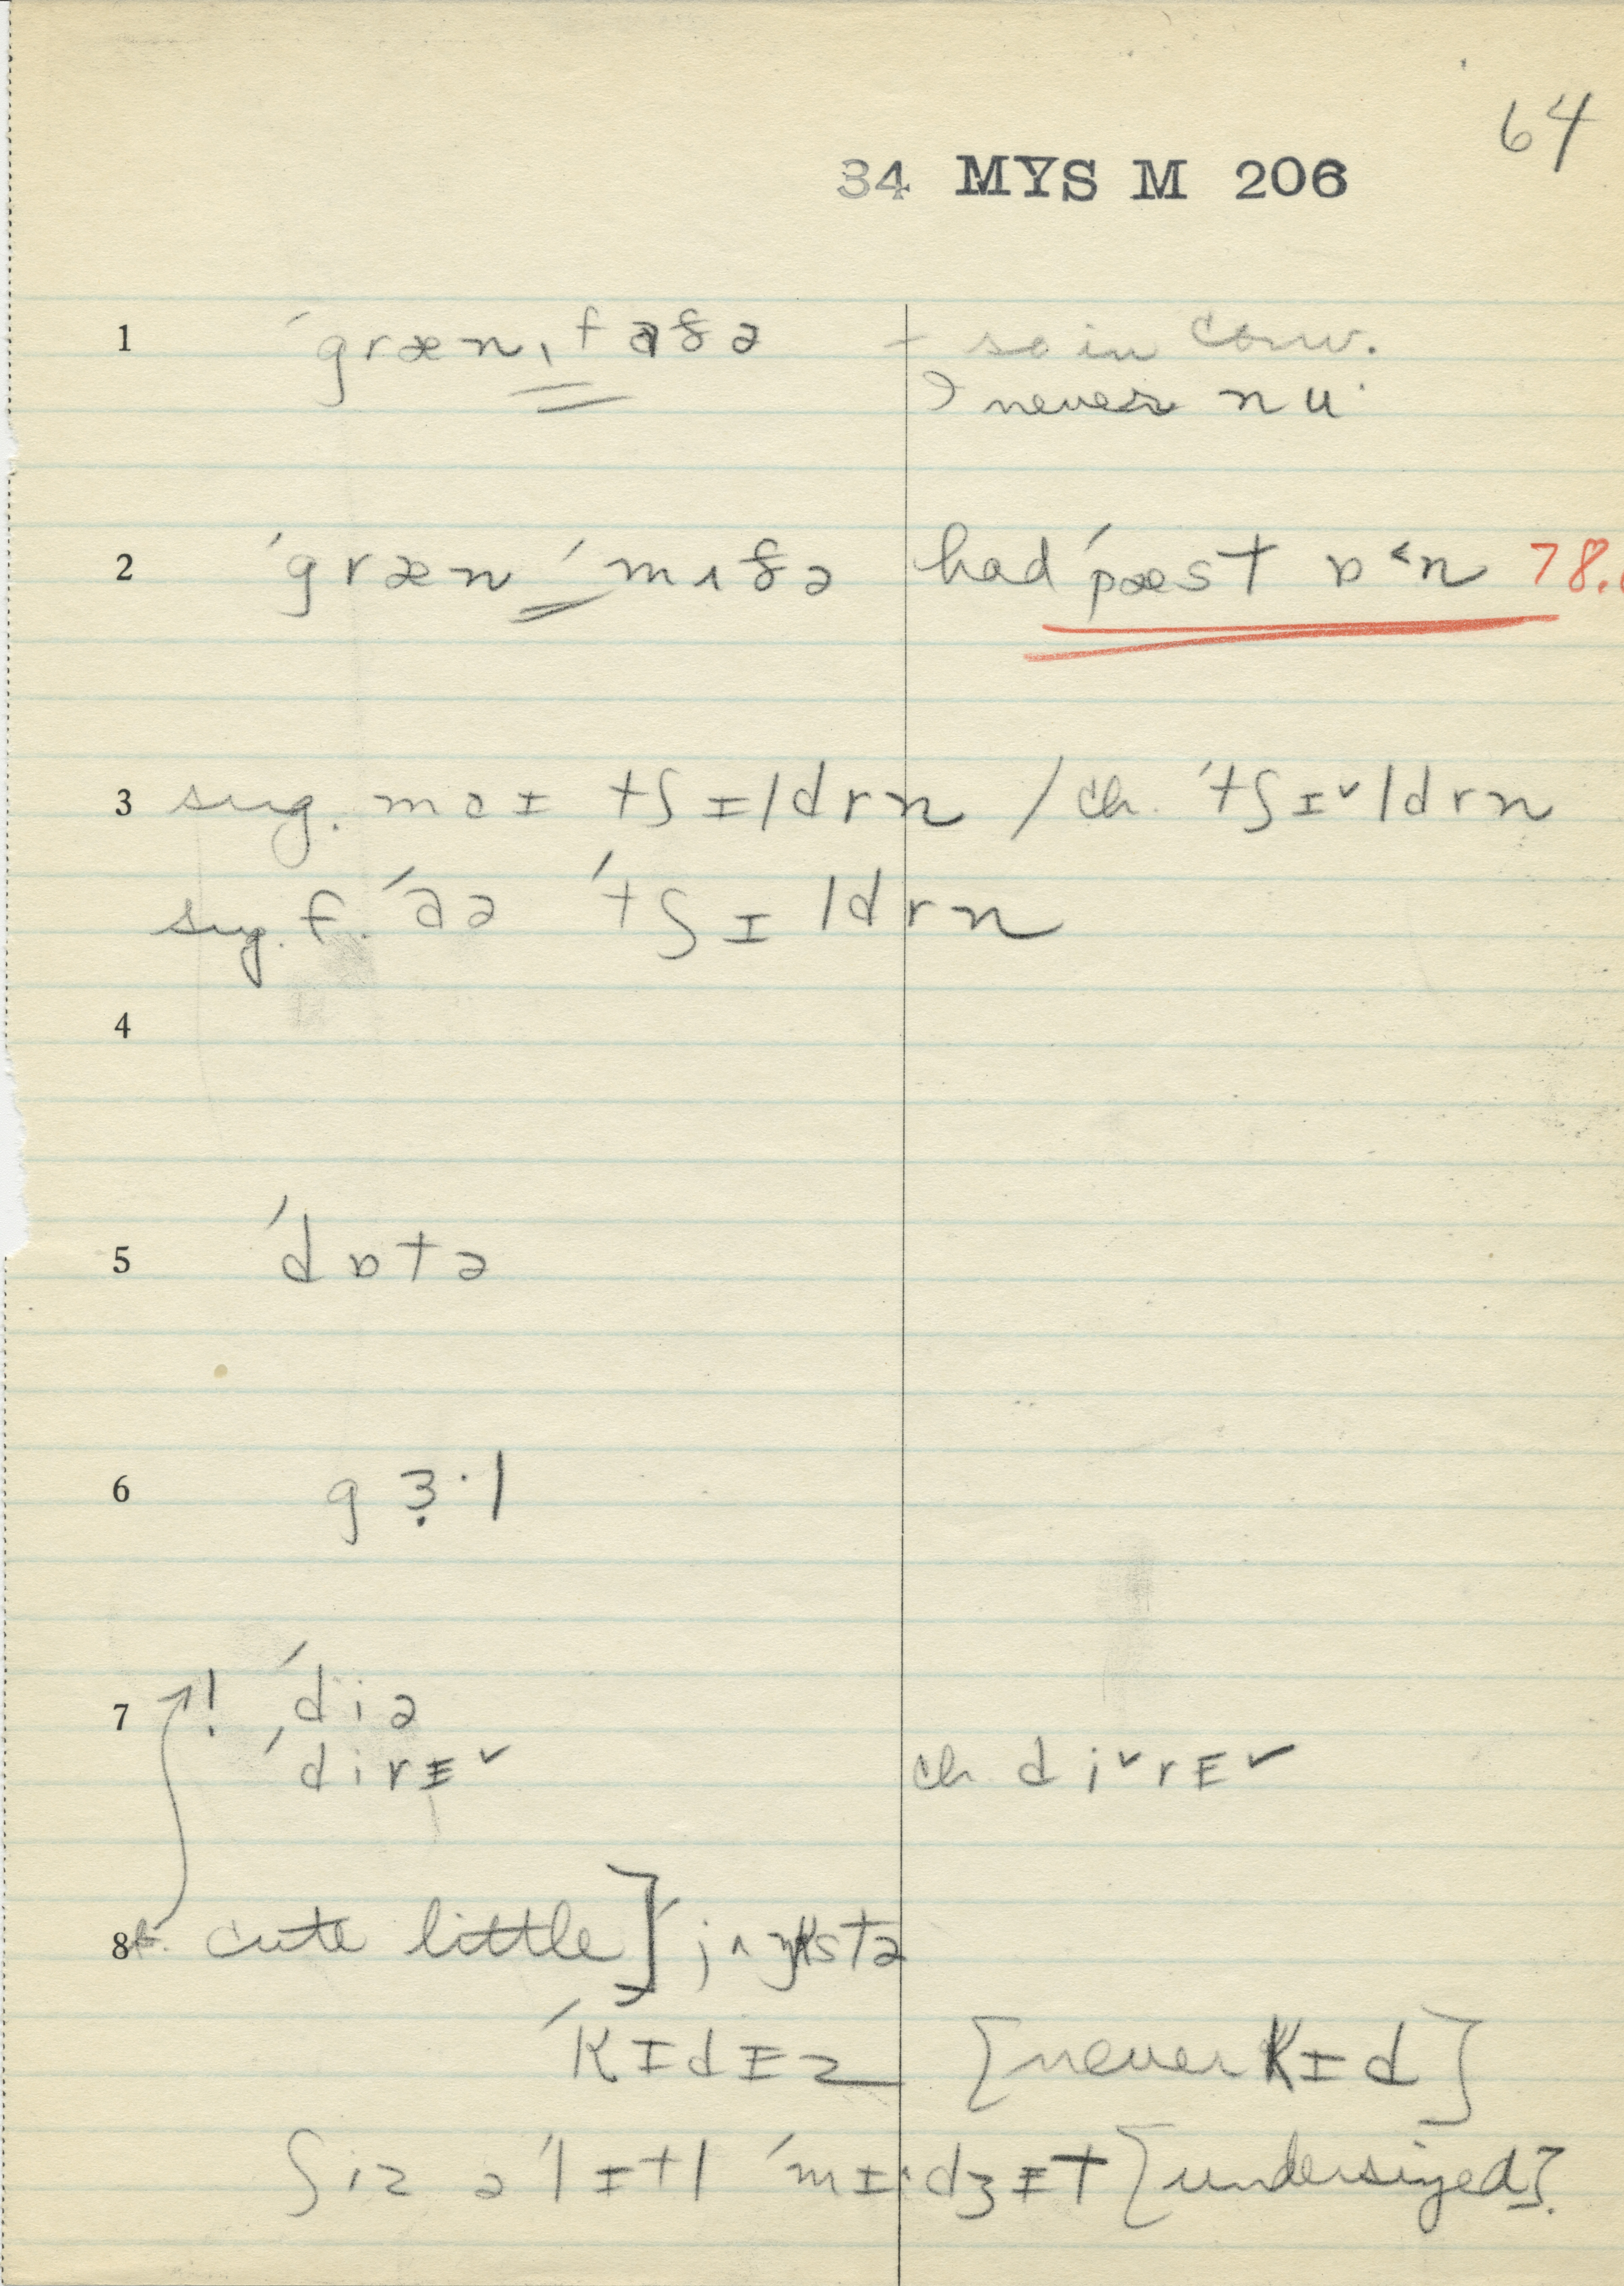 64
34 MYS M 206
1 ˈgræn ˌfɑðə + so in conv.
never nu·
2 ˈgræn ˈmʌðə had ˈpæst ɒ˂n 78.
3 sug. maɪ tʃɪldrn / ch. ˈtʃɪˇldrn
sug. f. ˈɑə ˈtʃɪldrn
4
5 ˈdɒtə
6 gɜ̣·l
7 ! ˈdiə
ˈdirɪˇ ch. diˇrɪˇ
8 f. cute little] ˈjʌŋkstə
ˈkɪdɪz [never kɪd]
ʃiz ə ˈlɪtl ˈmɪ·dʒɪt [undersized].